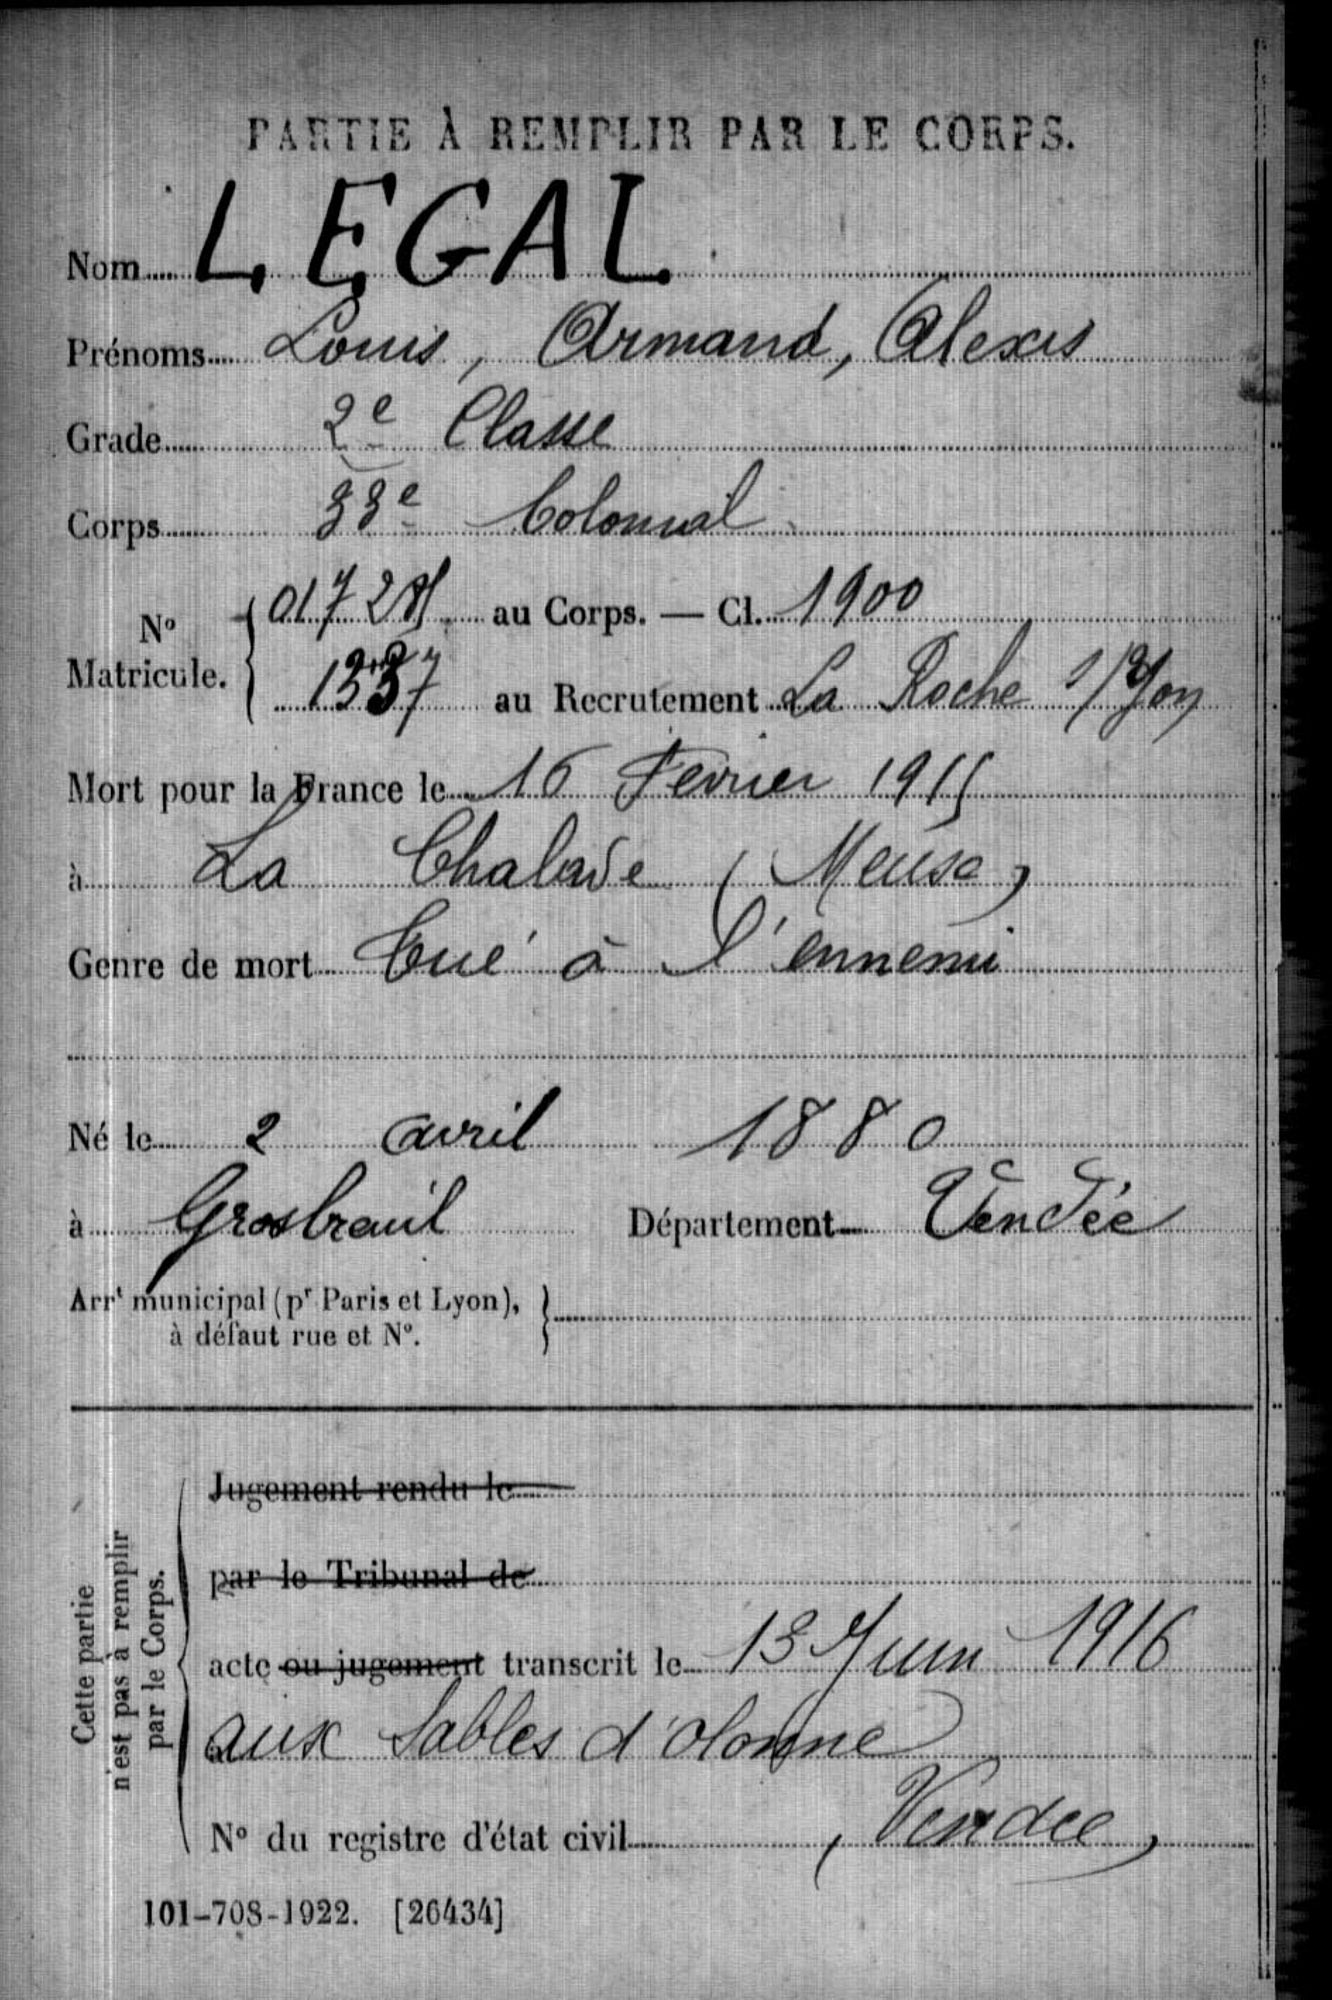 PARTIE À REMPLIR PAR LE CORPS.
Nom LEGAL
Prénoms Louis, Armand, Alexis
Grade 2e Classe
Corps 33e Colonial
No Matricule. au Corps. — Cl. 1900
1337 au Recrutement La Roche s/Yon
Mort pour la France le 16 Février 1915
à La Chalade (Meuse)
Genre de mort Tué à l'ennemi
Né le 2 avril 1880
à Grosbreuil Département Vendée
Arrt municipal (pr Paris et Lyon),
à défaut rue et No.
Cette partie
n'est pas à remplir
par le Corps.
Jugement rendu le
par le Tribunal de
acte ou jugement transcrit le 13 Juin 1916
aux Sables d'olonne
No du registre d'état civil (Vendee)
101-708-1922. [26434]